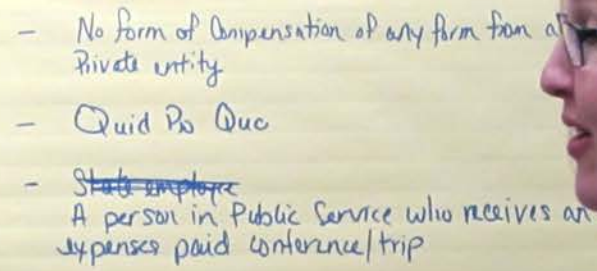 - No form of Compensation of any form from a
Private entity
- Quid Pro Quo
- State employee
A person in Public Service who receives an
expenses paid conference/trip